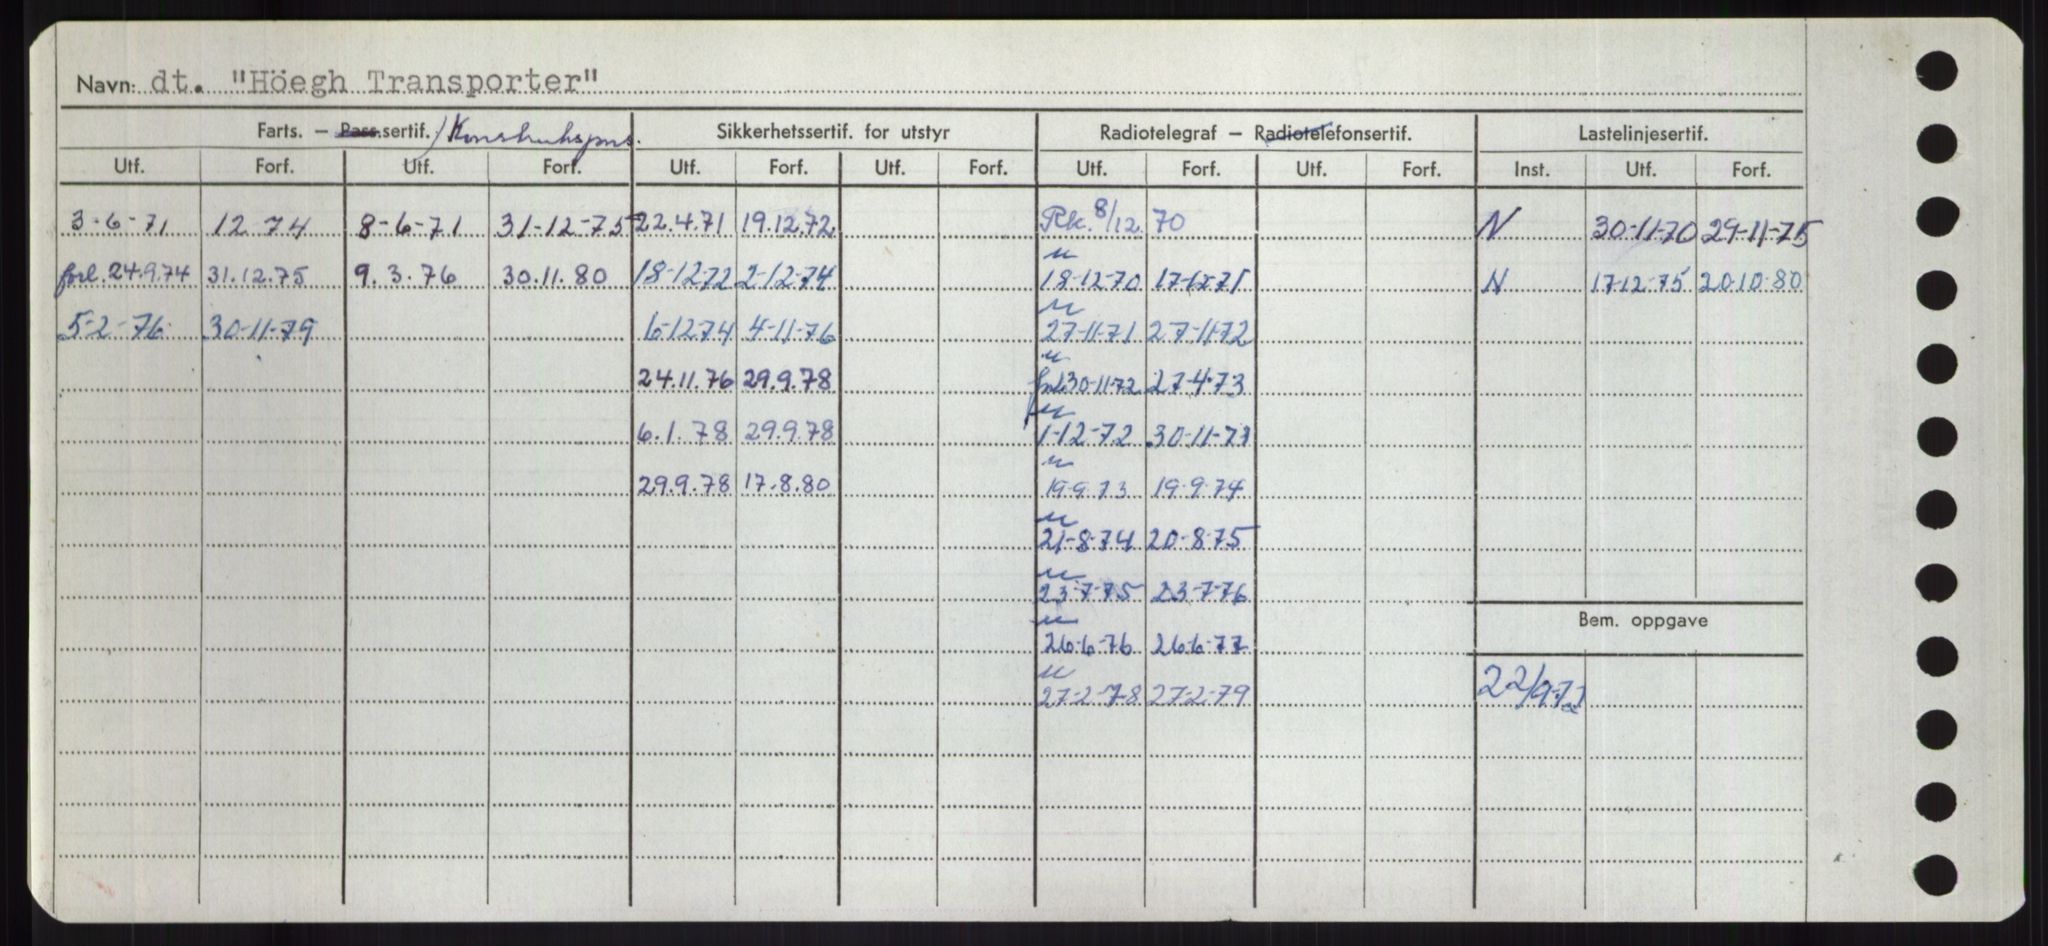 Navn: dt. "Höegh Transporter"
Farts. – Pass.sertif. / Konstruksjons. Sikkerhetssertif. for utstyr Radiotelegraf – Radiotelefonsertif. Lastelinjesertif.
Utf. Forf. Utf. Forf. Utf. Forf. Utf. Forf. Utf. Forf. Utf. Forf. Inst. Utf. Forf.
3-6-71 12 74 8-6-71 31-12-75 22.4.71 19.12.72 Rk. 8/12 70 N 30-11-70 29-11-75
forl. 24.9.74 31.12.75 9.3.76 30.11.80 18-12-72 2-12-74 " 18-12-70 17-12-71 N 17-12-75 20-10-80
5-2-76 30-11-79 6-12-74 4-11-76 " 27-11-71 27-11-72
24.11.76 29.9.78 " forl 30-11-72 27-4-73
6.1.78 29.9.78 " 1-12-72 30-11-73
29.9.78 17.8.80 " 19-9-73 19-9-74
" 21-8-74 20-8-75
" 23-7-75 23-7-76
Bem. oppgave
" 26-6-76 26-6-77
" 27-2-78 27-2-79 22/9-72